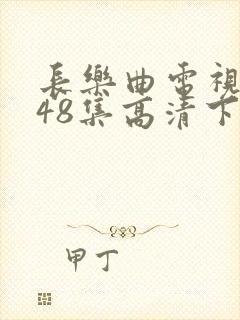 長樂曲電視
48集高清下
甲丁